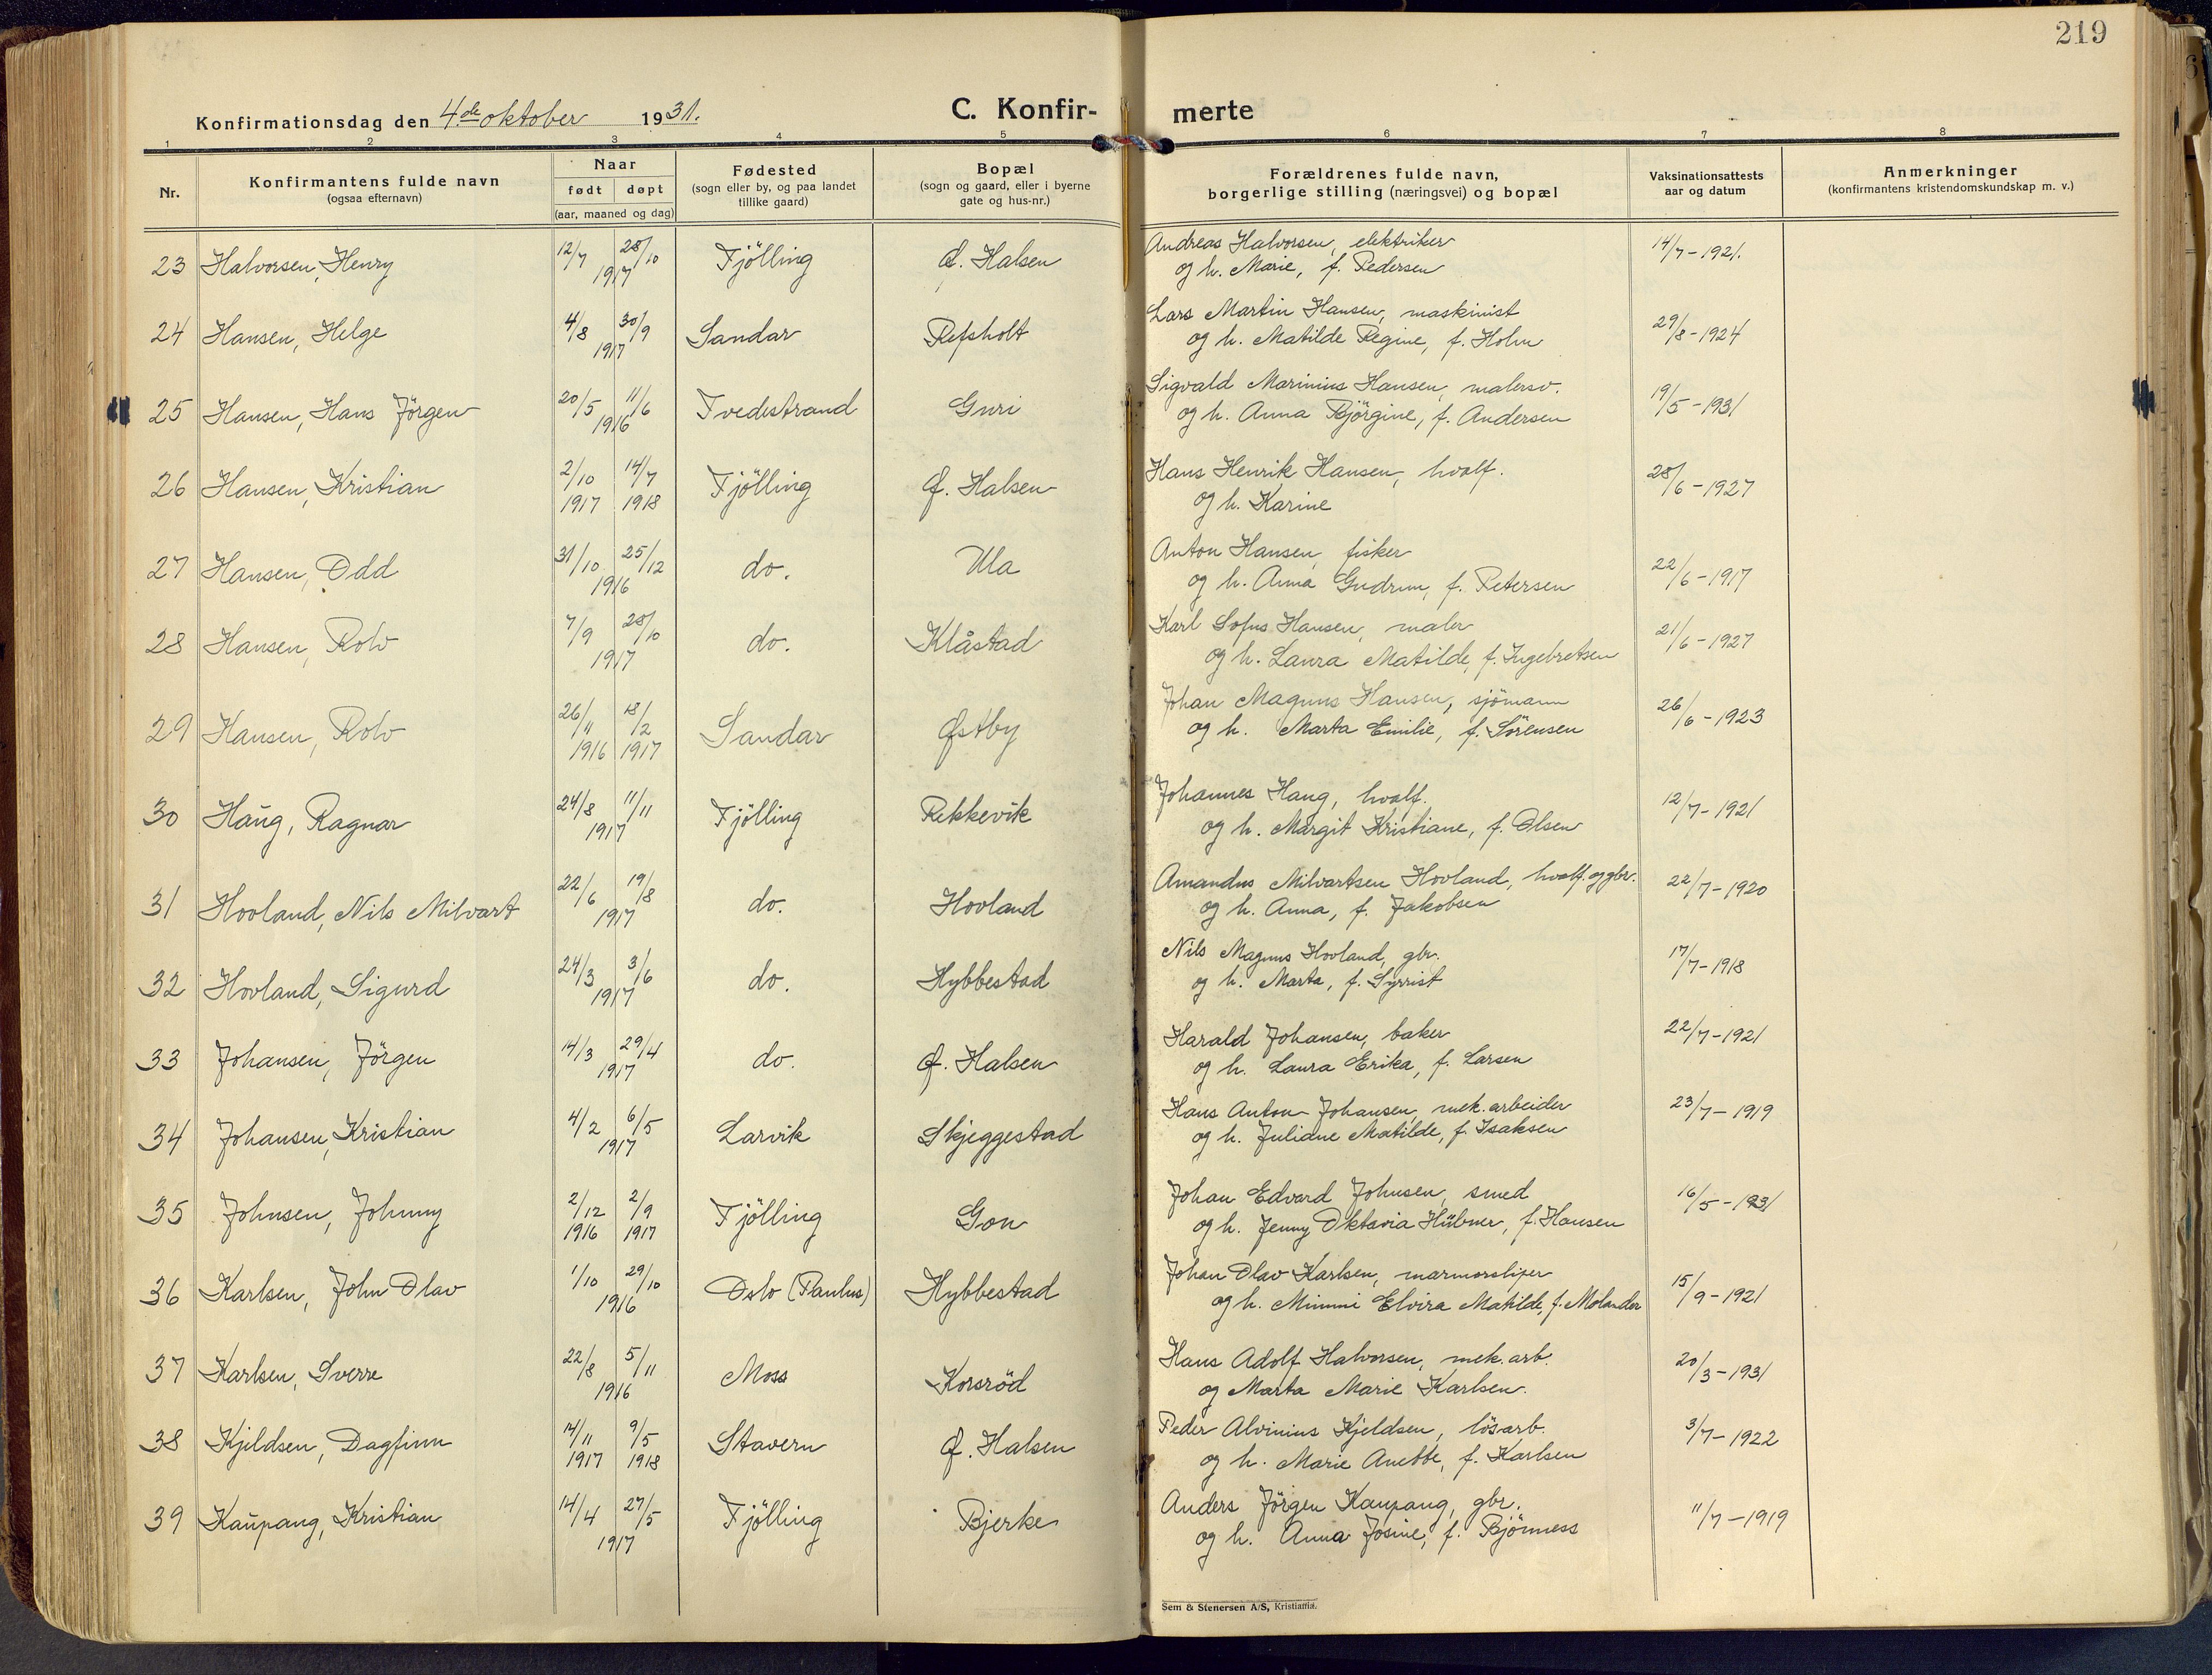 219
Konfirmationsdag den 4de oktober 1931.
C. Konfir-
merte
1 2 3 4 5 6 7 8
Nr.
Konfirmantens fulde navn
(ogsaa efternavn)
Naar
født døpt
(aar, maaned og dag)
Fødested
(sogn eller by, og paa landet
tillike gaard)
Bopæl
(sogn og gaard, eller i byerne
gate og hus-nr.)
Forældrenes fulde navn,
borgerlige stilling (næringsvei) og bopæl
Vaksinationsattests
aar og datum
Anmerkninger
(konfirmantens kristendomskundskap m. v.)
23 Halvorsen, Henry 12/7 28/10 1917 Tjölling Ø. Halsen Andreas Halvorsen, elektriker 14/7-1921.
og h. Marie, f. Pedersen
24 Hansen, Helge 4/8 30/9 1917 Sandar Refsholt Lars Martin Hansen, maskinist 29/8-1924
og h. Matilde Regine, f. Holm
25 Hansen, Hans Jörgen 20/5 11/6 1916 Tvedestrand Guri Sigvald Marinius Hansen, malersv. 19/5-1931
og h. Anna Björgine, f. Andersen
26 Hansen, Kristian 2/10 1917 14/7 1918 Tjölling Ø. Halsen Hans Henrik Hansen, hvalf. 28/6-1927
og h. Karine
27 Hansen, Odd 31/10 25/12 1916 do. Ula Anton Hansen, fisker 22/6-1917
og h. Anna Gudrun, f. Petersen
28 Hansen, Rolv 7/9 28/10 1917 do. Klåstad Karl Sofus Hansen, maler 21/6-1927
og h. Laura Matilde, f. Ingebretsen
29 Hansen, Rolv 26/11 1916 18/2 1917 Sandar Østby Johan Magnus Hansen, sjömann 26/6-1923
og h. Marta Emilie, f. Sörensen
30 Haug, Ragnar 24/8 11/11 1917 Tjölling Rekkevik Johannes Haug, hvalf. 12/7-1921
og h. Margit Kristiane, f. Olsen
31 Hovland, Nils Milvart 22/6 19/8 1917 do. Hovland Amandus Milvartsen Hovland, hvalf. og gbr. 22/7-1920
og h. Anna, f. Jakobsen
32 Hovland, Sigurd 24/3 3/6 1917 do. Hybbestad Nils Magnus Hovland, gbr. 17/7-1918
og h. Marta, f. Syrrist
33 Johansen, Jörgen 14/3 29/4 1917 do. Ø. Halsen Harald Johansen, baker 22/7-1921
og h. Laura Erika, f. Larsen
34 Johansen, Kristian 4/2 6/5 1917 Larvik Skjeggestad Hans Anton Johansen, mek. arbeider 23/7-1919
og h. Juliane Matilde, f. Isaksen
35 Johnsen, Johnny 2/12 1916 2/9 1917 Tjölling Gon Johan Edvard Johnsen, smed 16/5-1931
og h. Jenny Oktavia Hübner, f. Hansen
36 Karlsen, John Olav 1/10 29/10 1916 Oslo (Paulus) Hybbestad Johan Olav Karlsen, marmorsliper 15/9-1921
og h. Mimmi Elvira Matilde, f. Molander
37 Karlsen, Sverre 22/8 5/11 1916 Moss Korsröd Hans Adolf Halvorsen, mek. arb. 20/3-1931
og Marta Marie Karlsen.
38 Kjeldsen, Dagfinn 14/11 1917 9/5 1918 Stavern Ø. Halsen Peder Alvinius Kjeldsen, lösarb. 3/7-1922
og h. Marie Anette, f. Karlsen
39 Kaupang, Kristian 14/4 27/5 1917 Tjölling Bjerke Anders Jörgen Kaupang, gbr. 11/7-1919
og h. Anna Josine, f. Björnness
Sem & Stenersen A/S, Kristiania.